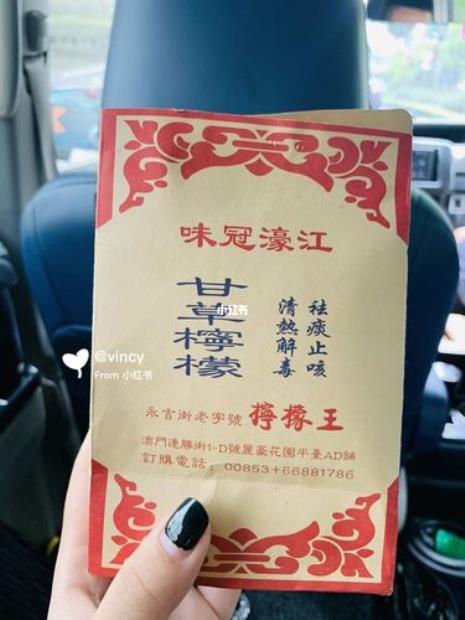 味冠濠江
甘草檸檬
祛痰止咳
清熱解毒
小红书
@vincy
From 小红书
永吉街老字號 檸檬王
澳門連勝街1-D號麗豪花園平臺AD舖
訂購電話：00853+66881786